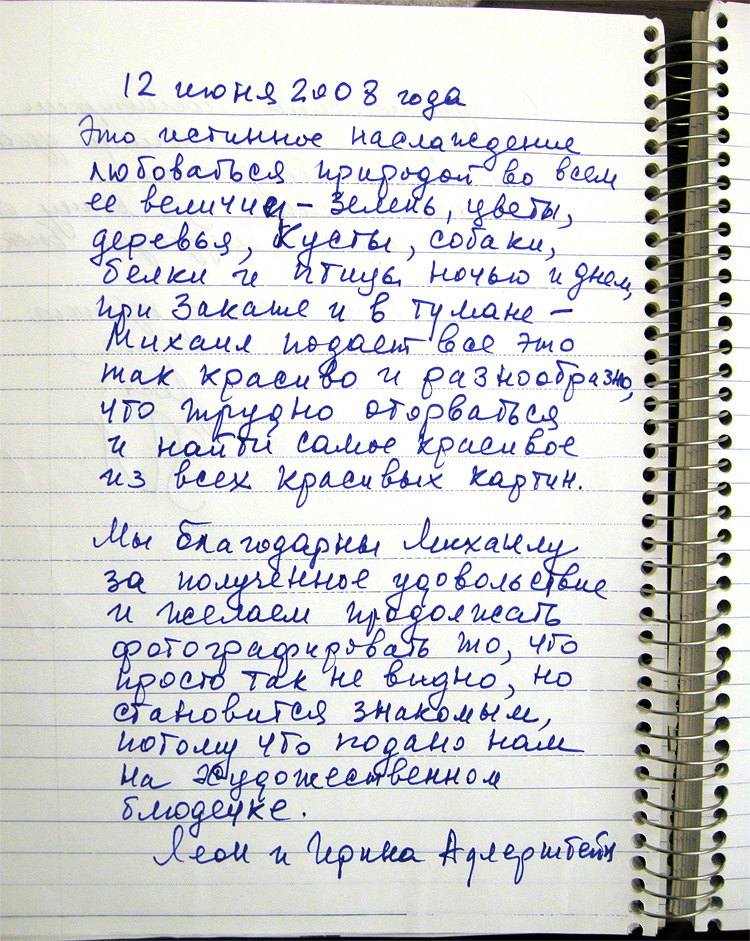 12 июня 2008 года
Это истинное наслаждение
любоваться природой во всем
ее величии – зелень, цветы,
деревья, кусты, собаки,
белки и птицы ночью и днем,
при закате и в тумане –
Михаил подает все это
так красиво и разнообразно,
что трудно оторваться
и найти самое красивое
из всех красивых картин.
Мы благодарны Михаилу
за полученное удовольствие
и желаем продолжать
фотографировать то, что
просто так не видно, но
становится знакомым,
потому что подано нам
на художественном
блюдечке.
Леон и Ирина Адлерштейн